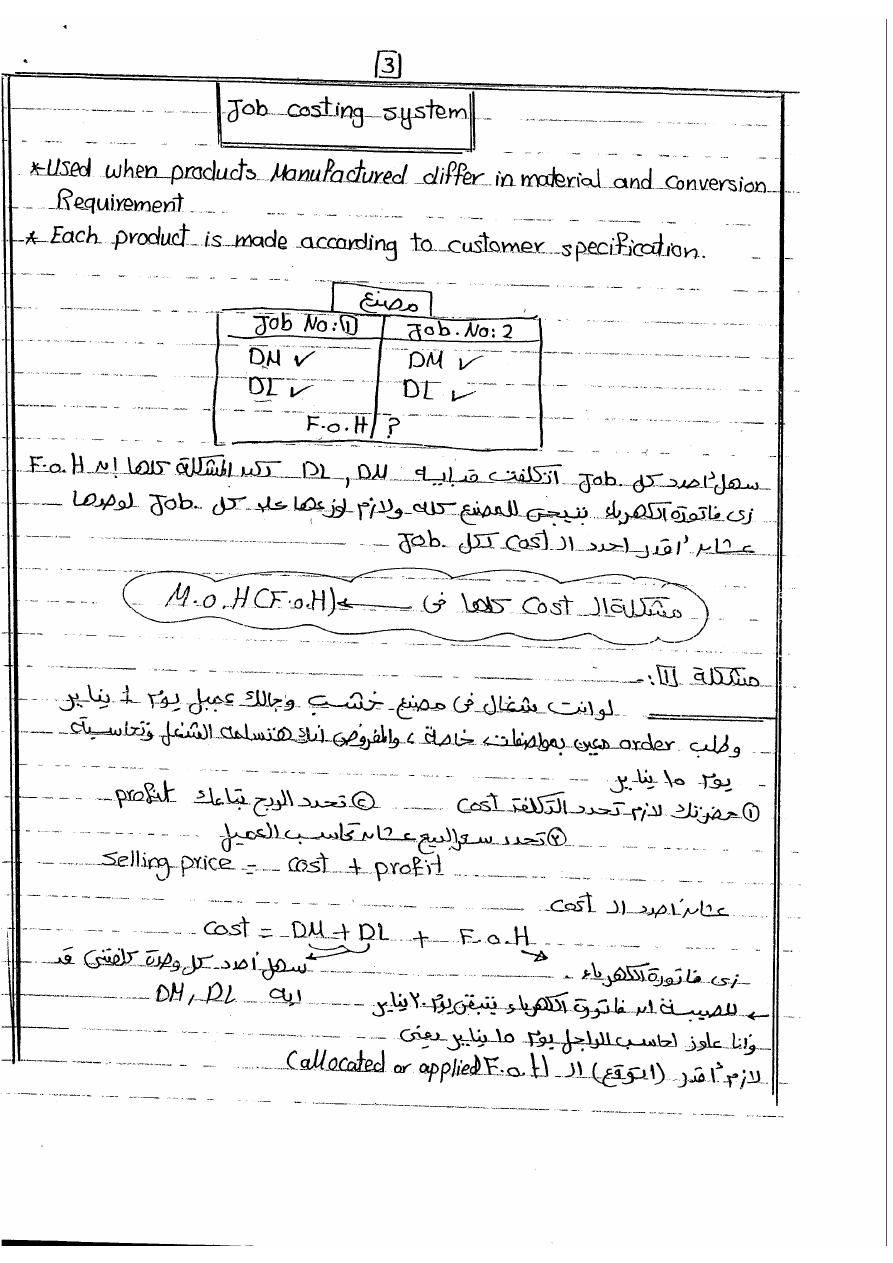 3
Job costing system
* Used when products Manufactured differ in material and conversion
Requirement
* Each product is made according to customer specification.
مصنع
Job No: 1 Job. No: 2
DM ✓ DM ✓
DL ✓ DL ✓
F.o.H ?
سهل أحدد كل Job. اتكلفت قد ايه DM, DL لكن المشكلة كلها ان F.o.H
زى فاتورة الكهرباء بتيجى للمصنع كله ولازم اوزعها على كل Job. لوحدها
عشان أقدر احدد ال Cost لكل Job.
مشكلة ال Cost كلها فى ← M.O.H (F.o.H)
مشكلة 1:-
لو انت شغال فى مصنع خشب وجالك عميل يوم ١ يناير
وطلب order معين بمواصفات خاصة، والمفروض انك هتسلمه الشغل وتحاسبه
يوم ١٥ يناير
① حضرتك لازم تحدد التكلفة Cost ② تحدد الربح بتاعك profit
③ تحدد سعر البيع عشان تحاسب العميل
Selling price = cost + profit
عشان أحدد ال Cost
Cost = DM + DL + F.o.H
زى فاتورة الكهرباء. سهل أحدد كل وحدة كلفتنى قد
ايه DM, DL
← المصيبة ان فاتورة الكهرباء بتبقى يوم ٣٠ يناير
وأنا عاوز احاسب الراجل يوم ١٥ يناير يعنى
لازم أقدر (اتوقع) ال (allocated or applied F.o.H